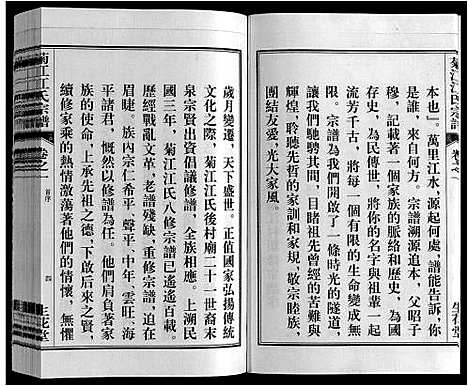 菊江江氏宗譜
卷之一
本也』。萬里江水，源起何處，譜能告訴，你
是誰，來自何方。宗譜溯源追本，父昭子
穆，記載著一個家族的脈絡和歷史，為
存史，為民傳世，將你的名字與祖輩一起
流芳千古，將每一個有限的生命變成無
限。宗譜為我們開啟了一條時光的隧道，
讓我們馳騁其間，目睹祖先曾經的苦難與
輝煌，聆聽先哲的家訓和家規，敬宗睦族，
團結友愛，光大家風。
歲月變遷，天下盛世。正值國家弘揚傳統
文化之際，菊江江氏後村廟二十一世裔末
泉宗賢出資倡議修譜，全族相應。上溯民
國三年，菊江江氏八修宗譜已遙遙百載。
歷經戰亂文革，老譜殘缺，重修宗譜，迫在
眉睫。族內宗仁希平、聲平、中年、雲旺、海
平諸君，慨然以修譜為任。他們肩負著家
族的使命，上承先祖之德，下啟后來之賢，
續修家乘的熱情激蕩著他們的情懷，無懼
菊江江氏宗譜
卷之一
首序
四